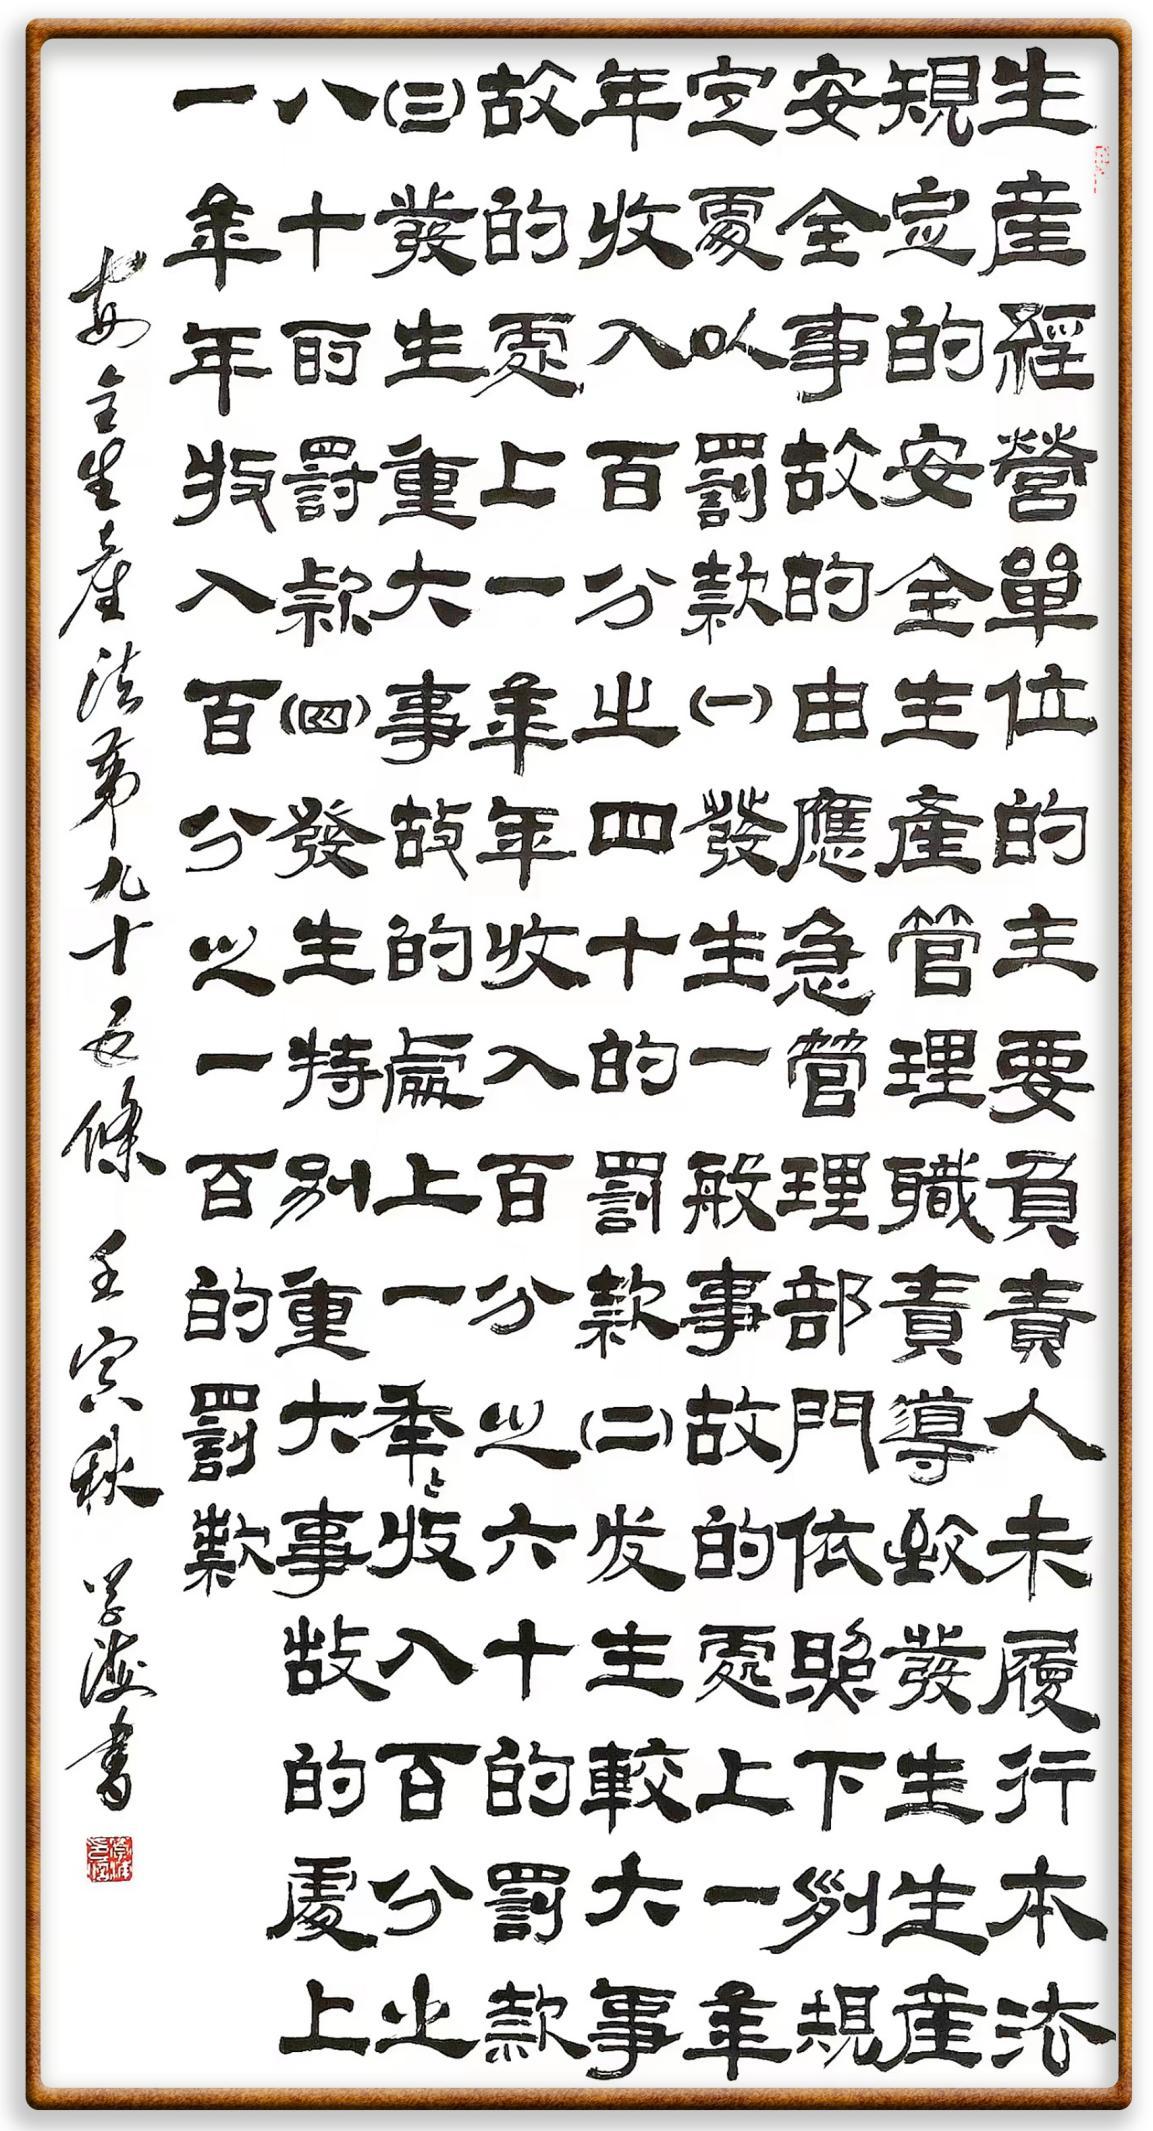 生産經營單位的主要負責人未履行本法
規定的安全生產管理職責導致發生生産
安全事故的由應急管理部門依照下列規
定處以罰款(一)發生一般事故的處上一年
年收入百分之四十的罰款(二)发生較大事
故的處上一年年收入百分之六十的罰款
(三)發生重大事故的處上一年〻收入百分之
八十的罰款(四)發生特別重大事故的處上
一年年收入百分之一百的罰款
安全生產法第九十五條 壬寅秋 学海書